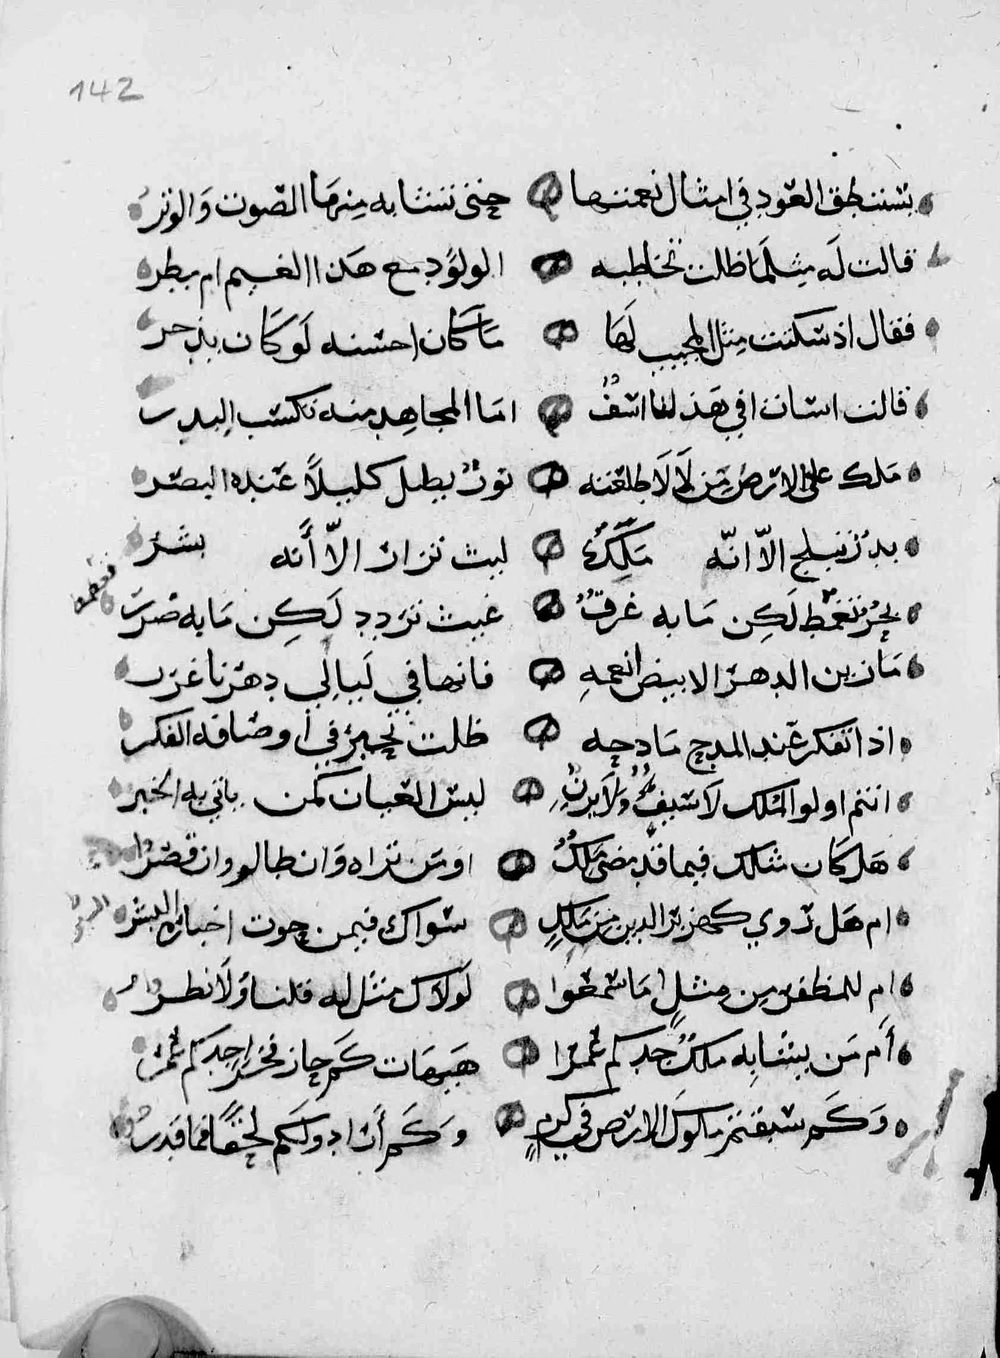 142
تستنطق العود في امثال نعمتها حتى تشابه منها الصوت والوتر
قالت له مثلما ظلت تخاطبه الولود مع هذا الغيم ام مطر
فقال اذ سكتت مثل المجيب لها ما كان احسنه لو كان
قالت اسات افي هذا اما المجاهد منه تكسب
ملك على الارض من لالا طلعته نور يظل كليلاً عنده البصر
بدر تبلج الاّ انّه ملك ليث تزار الاّ أنه بشر
بحر تغطمط لكن ما به غرق غيث تردد لكن ما به ضرر
ما زين الدهر الا بيض انعمه فانها في ليالي دهرنا غرر
اذا تفكر عند المدح مادحه ظلت تحير في اوصافه الفكر
انتم اولوا الملك لا سيف ولا يزن ليس العيان كمن ياتي به الخبر
هل كان مثلك فيما قد مضى ملك او من تراه وان طالوا وان قصروا
ام هل روي كهزبر الدين من ملك سواك فيمن حوت اخباره البشر
ام للمظفر من مثل اما سمعوا لولاك مثل له قلنا ولا نظروا
أم من يشابه ملك جدكم عمرا هيهات كم حاز فخرا جدكم عمر
وكم سبقتم ملوك الارض في كرم وكم أرادوا لكم لحقاً فما قدروا